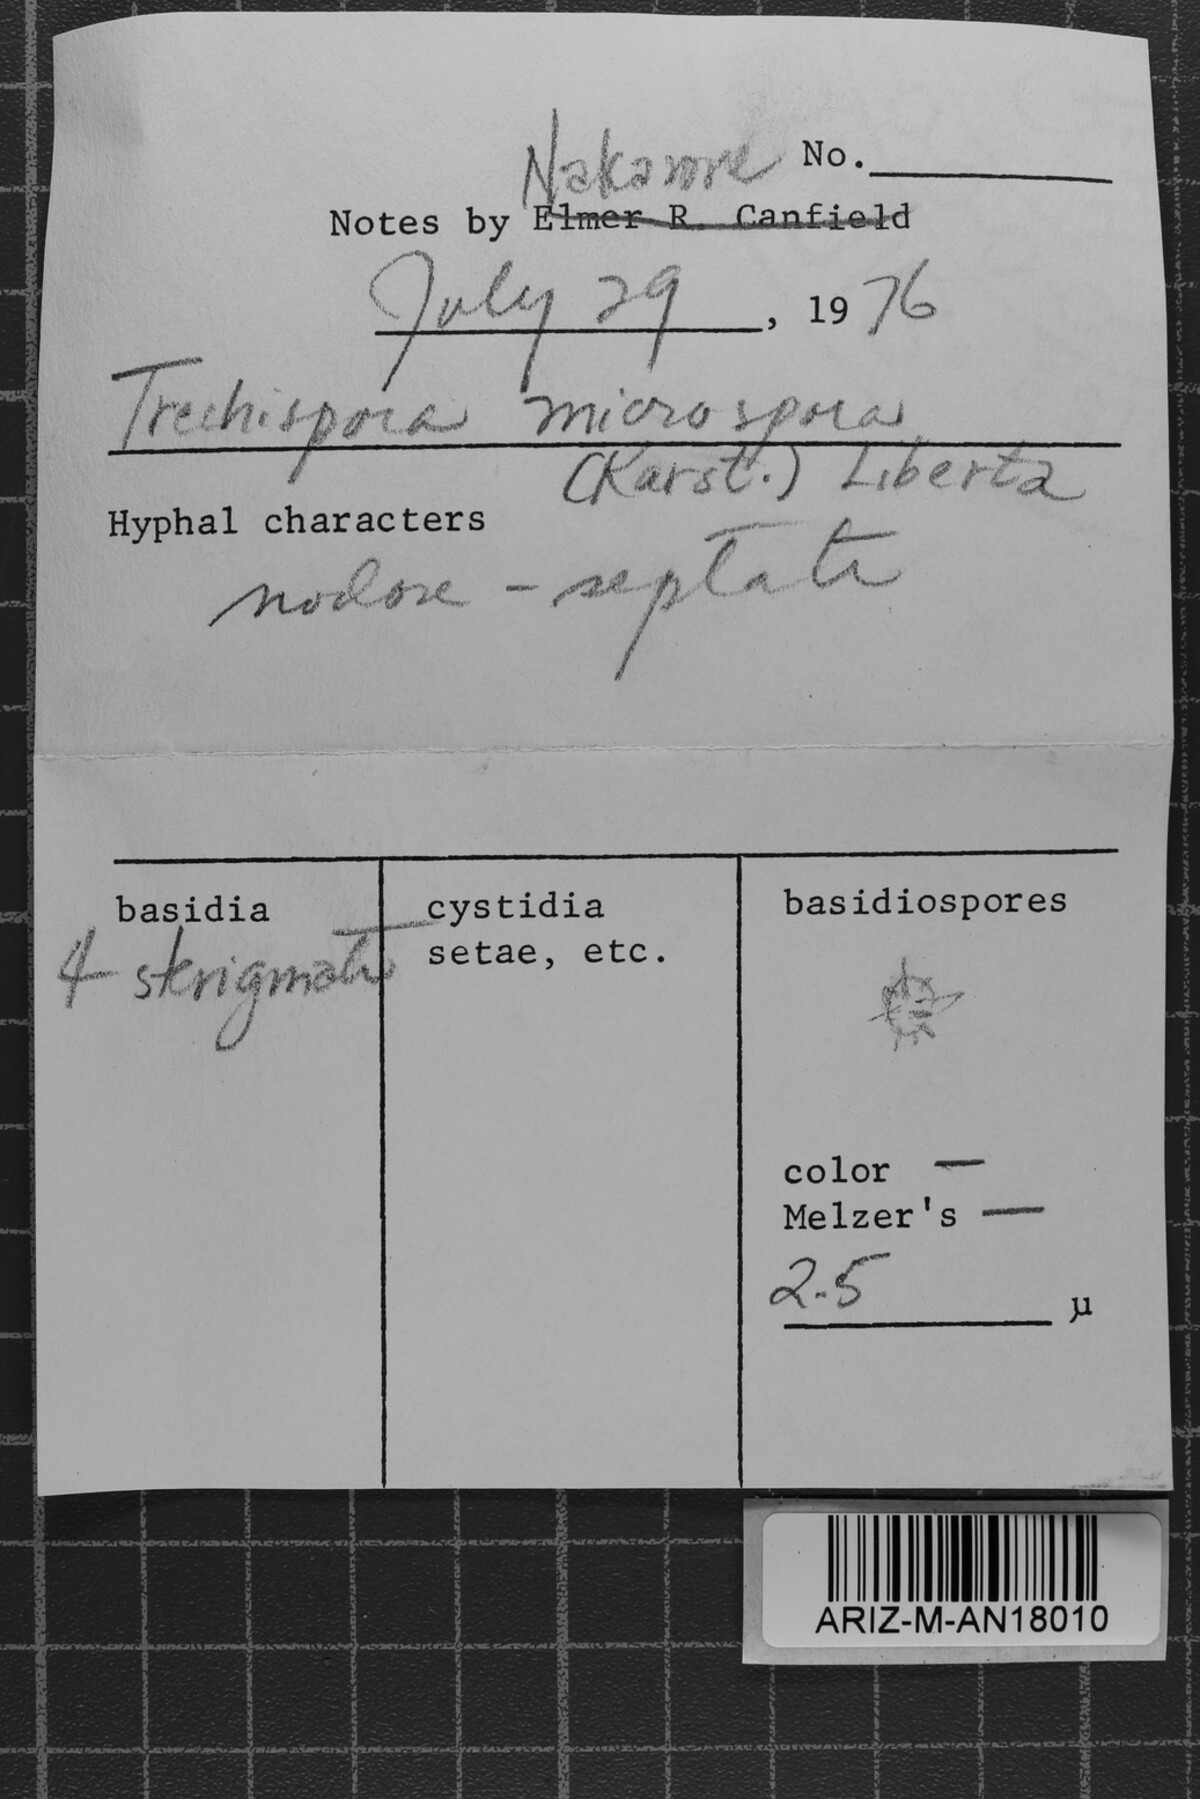 Nakasone No.
Notes by Elmer R. Canfield
July 29, 1976
Trechispora microspora
(Karst.) Liberta
Hyphal characters
nodose - septate
basidia
4 sterigmate
cystidia
setae, etc.
basidiospores
color —
Melzer's —
2.5 µ
ARIZ-M-AN18010